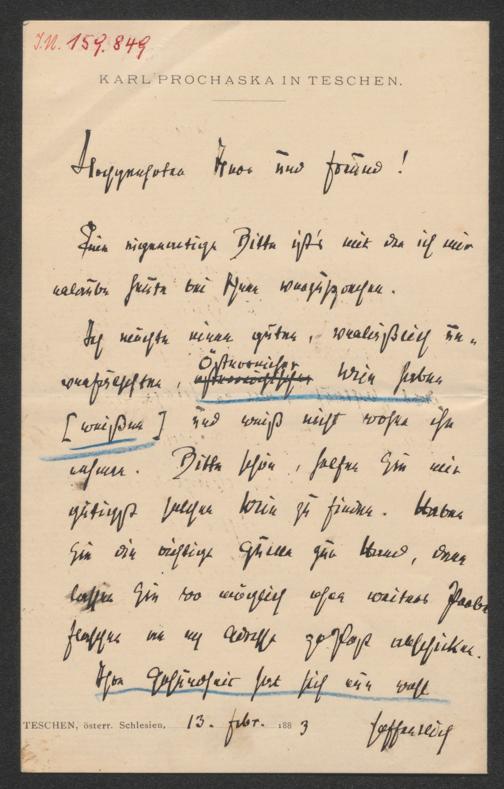 I.N. 159.849
KARL PROCHASKA IN TESCHEN.
Hochgeehrter Herr und Freund!
Eine eigenartige Bitte ist's mit der ich mir
erlaube heute bei Ihnen vorzusprechen.
Ich möchte einen guten, verläßlich un-
verfälschten, Österreicher Wein haben
[weißen] und weiß nicht woher ihn
nehmen. Bitte schön, helfen Sie mir
gütigst solchen Wein zu finden. Haben
Sie die richtige Quelle zur Hand, dann
lassen Sie wo möglich ohne weiteres Probe
flaschen an m Adresse p. Post abschicken.
Ihre Gesundheit hat sich nun wohl
TESCHEN, österr. Schlesien, 13. febr. 1883 hoffentlich